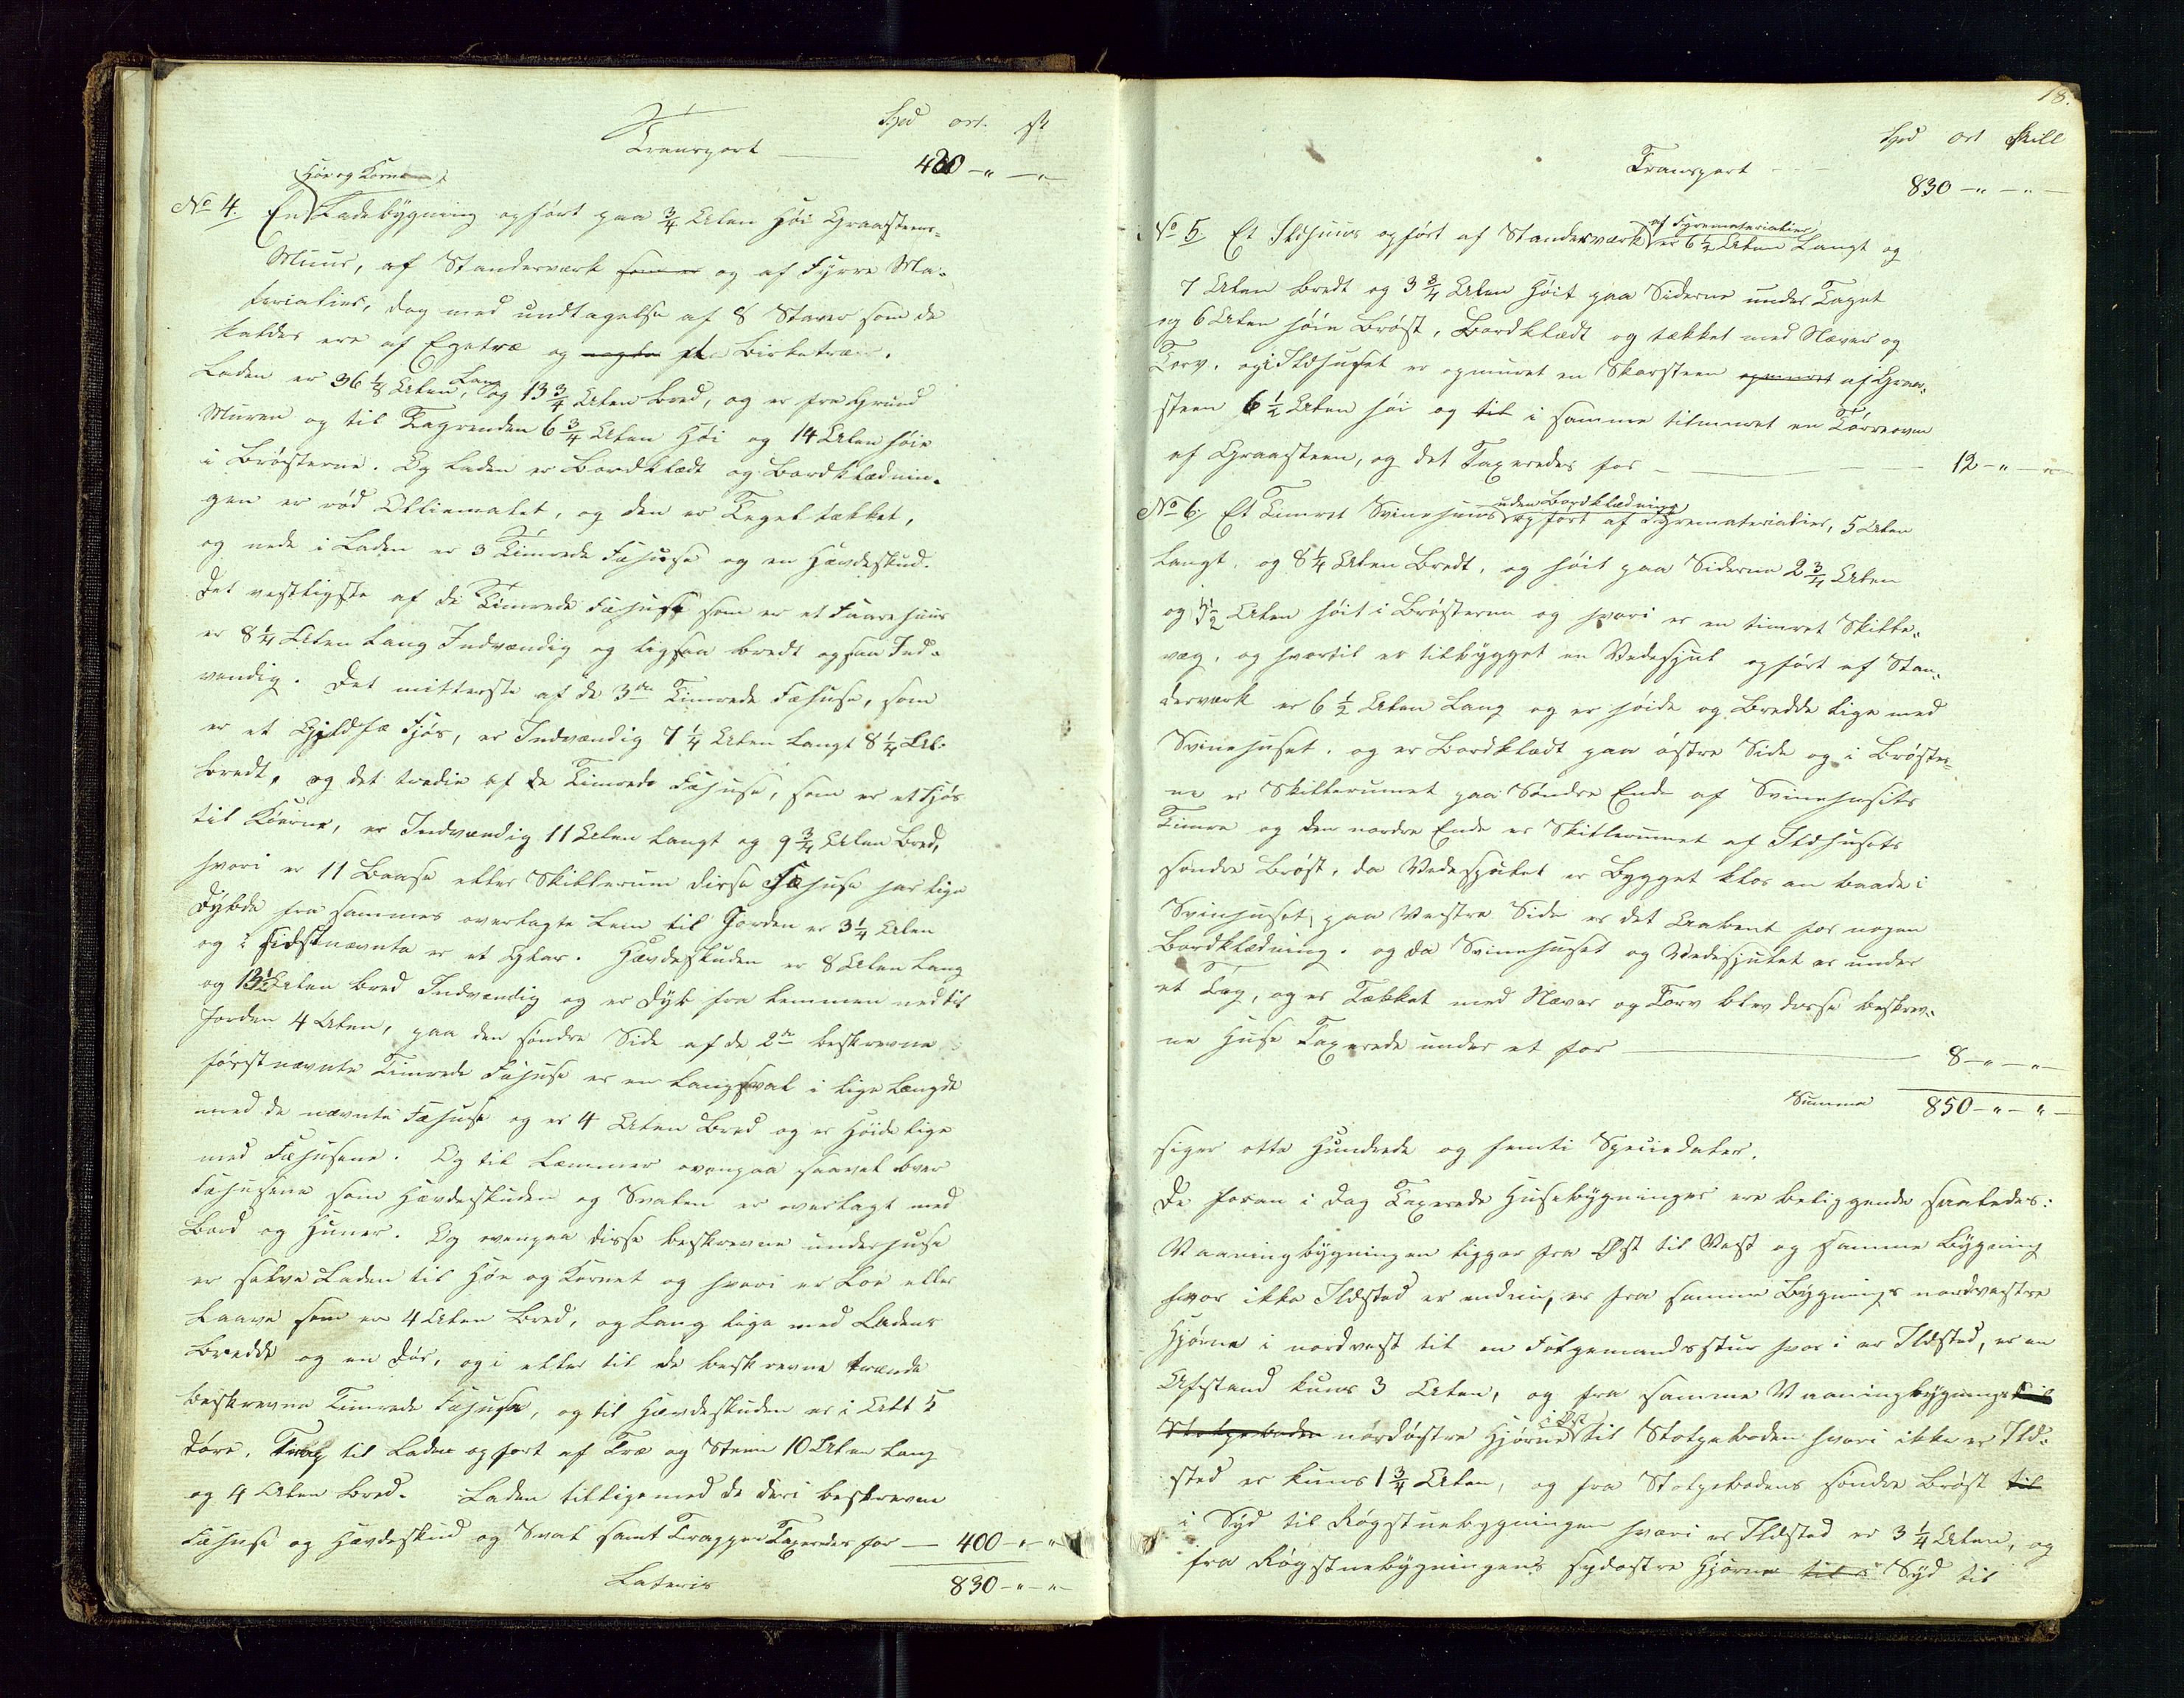 Spd ort. sk
Transport — 430 - " - "
Høe og Korne
No 4. En Ladebygning opført paa 3/4 Alen Høi Graasteens-
Muur, af Standerværk som er og af Fyrre Ma-
terialier, dog med undtagelse af 8 Staver som de
kaldes ere af Egetræ og nogle af Birketræe.
Laden er 36 1/8 Alen Lang, og 13 3/4 Alen bred, og er fra Grund
Muren og til Tagrenden 6 3/4 Alen Høi og 14 Alen høie
i Brøsterne. Og Laden er Bordklædt og Bordklædnin-
gen er rød Olliemalet, og den er Tegel tækket,
og nede i Laden er 3 Timrede Fæhuse og en Hævdeskud.
Det vestligste af de Timrede Fæhuse som er et Faarehuus
er 8 1/4 Alen Lang Indvændig og ligsaa bredt ogsaa Ind-
vendig. Det mitterste af de 3de Timrede Fæhuse, som
er et Gjeldfæ Fjøs, er Indvændig 7 1/4 Alen Langt 8 1/4 Al.
bredt, og det tredie af de Timrede Fæhuse, som er et Fjøs
til Kiørne, er Indvændig 11 Alen Langt og 9 3/4 Alen Bred,
hvori er 11 Baase eller Skillerum disse Fæhuse har lige
Dybde fra sammes overlagte Lem til Jorden er 3 1/4 Alen
og i sidstnævnte er et Glas. Hævdeskuden er 8 Alen Lang
og 13 1/2 Alen bred Indvændig og er Dyb fra Lemmen ned til
Jorden 4 Alen, paa den søndre Side af de 2de beskrevne
førstnævnte Timrede Fæhuse er en Langsval i lige Længde
med de nævnte Fæhuse og er 4 Alen Bred og er Høide lige
med Fæhusene. Og til Lemmer ovenpaa saavel over
Fæhusene som Hævdeskuden og Svalen er overlagt med
Bord og Huner. Og ovenpaa disse beskrevne underhuse
er selve Laden til Høe og Kornet og hvori er Loe eller
Laave som er 4 Alen Bred, og Lang lige med Ladens
Bredde og en Dør, og i eller til de beskrevne trende
beskrevne Timrede Fæhuse, og til Hævdeskuden er i Alt 5
Døre. Trap til Laden opført af Træ og Steen 10 Alen Lang
og 4 Alen Bred. Laden tilligemed de deri beskrevne
Fæhuse og Hævdeskud og Sval samt Trappen Taxeredes for — 400 - " - "
Lateris 830 - " - "
18.
Spd ort skill
Transport - - - 830 - " - " -
No 5. Et Ildhuus opført af Standerværk af Fyrematerialier er 6 1/2 Alen Langt og
7 Alen bredt og 3 3/4 Alen Høit paa Siderne under Taget
og 6 Alen høie Brøst, Bordklædt og tækket med Næver og
Torv. og i Ildhuset er opmuret en Skorsteen opmuret af Graa-
steen 6 1/2 Alen høi og til i samme tilmuret en Tørreovn
af Graasteen, og det Taxeredes for — 12 - " - "
No 6. Et Timret Svinehuus uden Bordklædning opført af Fyrematerialier, 5 Alen
Langt, og 8 1/4 Alen Bredt, og høit paa Siderne 2 3/4 Alen
og 5 1/2 Alen høit i Brøsterne og hvori er en timret Skille-
væg, og hvortil er tilbygget en Vedeskjul opført af Stan-
derværk er 6 1/2 Alen Lang og er høide og Bredde lige med
Svinehuset. og er Bordklædt paa østre Side og i Brøster-
ne er Skillerumet paa Søndre Ende af Svinehusets
Timre og den nordre Ende er Skillerumet af Ildhusets
søndre Brøst, da Vedeskjulet er Bygget klos an baade i
Svinhuset, paa Vestre Side er det Aabent for nogen
Bordklædning. og da Svinehuset og Vedeskjulet er under
et Tag, og er Tækket med Næver og Torv blev disse beskrev-
ne Huse Taxerede under et for — 8 - " - " -
Summa 850 - " - " -
siger otte Hundrede og femti Speciedaler.
De foran i Dag Taxerede Husebygninger ere beliggende saaledes:
Vaaningbygningen ligger fra Øst til Vest og samme Bygning
hvor ikke Ildsted er endnu, er fra samme Bygnings nordvestre
Hjørne i nordvest til en Følgemandsstue hvor i er Ildsted, er en
Afstand kuns 3 Alen, og fra samme Vaaningbygnings til
Stolpeboden nordøstre Hjørne i Øst til Stolpeboden hvori ikke er Ild-
sted er kuns 1 3/4 Alen, og fra Stolpebodens søndre Brøst til
i Syd til Røgstuebygningen hvori er Ildsted er 3 1/4 Alen, og
fra Røgstuebygningens sydostre Hjørne til i Syd til